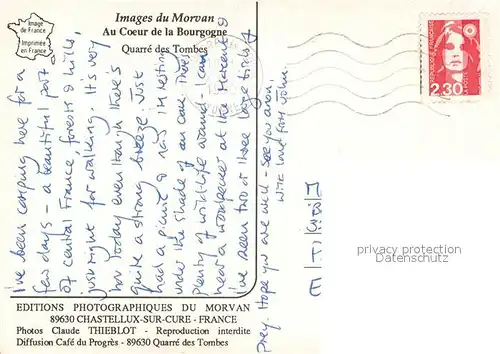 Image
de France
Imprimée
en France
Images du Morvan
Au Coeur de la Bourgogne
Quarré des Tombes
REPUBLIQUE FRANÇAISE
LA POSTE
2,30
I've been camping here for a
few days - a beautiful part
of central France, forests & hills,
just right for walking. It's very
hot today even though there's
quite a strong breeze. Just
had a picnic & now I'm resting
under the shade of an oak. There's
plenty of wildlife around - can
hear a woodpecker at the moment &
I've seen two or three large birds of
prey. Hope you are well - see you soon,
with love from John.
EDITIONS PHOTOGRAPHIQUES DU MORVAN
89630 CHASTELLUX-SUR-CURE - FRANCE
Photos Claude THIEBLOT - Reproduction interdite
Diffusion Café du Progrès - 89630 Quarré des Tombes
watermark protection